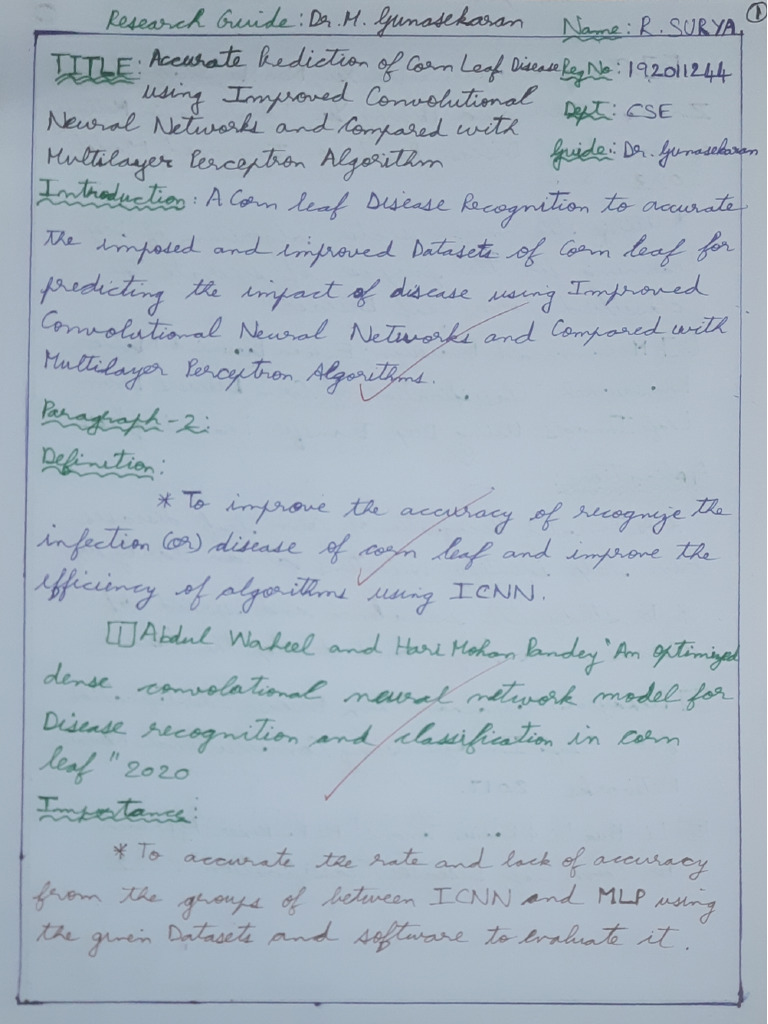 Research Guide: Dr. M. Gunasekaran
Name: R. SURYA
1
TITLE: Accurate Prediction of Corn Leaf Disease
Reg No: 192011244
using Improved Convolutional
Dept: CSE
Neural Networks and Compared with
Guide: Dr. Gunasekaran
Multilayer Perceptron Algorithm
Introduction: A Corn leaf Disease Recognition to accurate
the imposed and improved Datasets of Corn leaf for
predicting the impact of disease using Improved
Convolutional Neural Networks and Compared with
Multilayer Perceptron Algorithms.
Paragraph-2:
Definition:
* To improve the accuracy of recognize the
infection (or) disease of corn leaf and improve the
efficiency of algorithms using ICNN.
[1] Abdul Waheel and Hari Mohan Pandey "An optimized
dense convolational neural network model for
Disease recognition and classification in corn
leaf" 2020
Importance:
* To accurate the rate and lack of accuracy
from the groups of between ICNN and MLP using
the given Datasets and software to evaluate it.